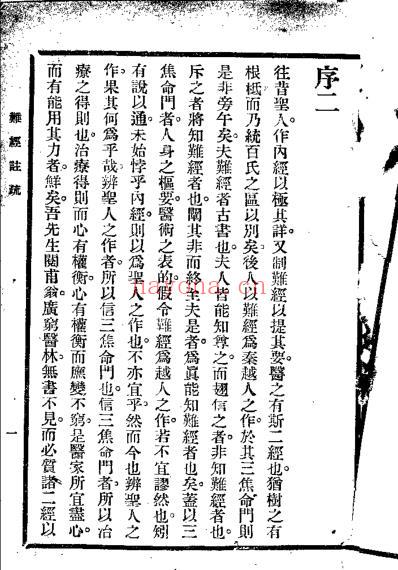 序二
往昔聖人作內經以極其詳又制難經以提其要醫之有斯二經也猶樹之有
根柢而乃統百氏之區以別矣後人以難經爲秦越人之作於其三焦命門則
是非旁午矣夫難經者古書也夫人皆能知尊之而翅信之者非知難經者也
斥之者將知難經者也闢其非而終至夫是者爲眞能知難經者也矣蓋以三
焦命門者人身之樞要醫術之表的假令難經爲越人之作若不宜謬然也矧
有說以通未始悖乎內經則以爲聖人之作也不亦宜乎然而今也辨聖人之
作果其何爲乎哉辨聖人之作者所以信三焦命門也信三焦命門者所以治
療之得則也治療得則而心有權衡心有權衡而應變不窮是醫家所宜盡心
而有能用其力者鮮矣吾先生閱甫翁廣窮醫林無書不見而必質諸二經以
難經註疏
一
nayona.cn